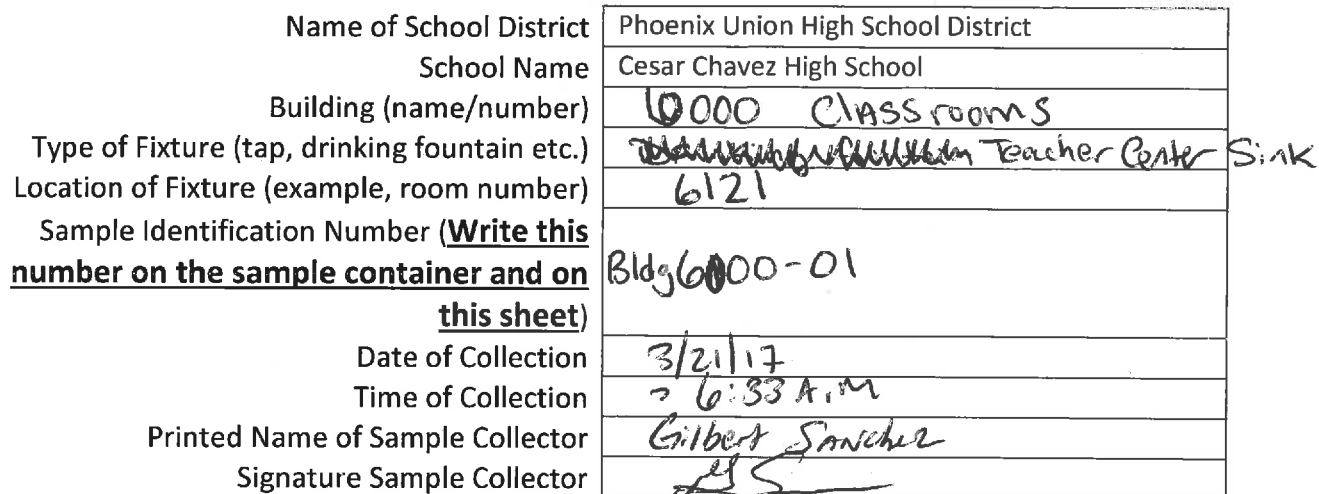 Name of School District Phoenix Union High School District
School Name Cesar Chavez High School
Building (name/number) 6000 Classrooms
Type of Fixture (tap, drinking fountain etc.) Teacher Center Sink
Location of Fixture (example, room number) 6121
Sample Identification Number (Write this
number on the sample container and on Bldg6000-01
this sheet)
Date of Collection 3/21/17
Time of Collection 6:33 A.M
Printed Name of Sample Collector Gilbert Sanchez
Signature Sample Collector